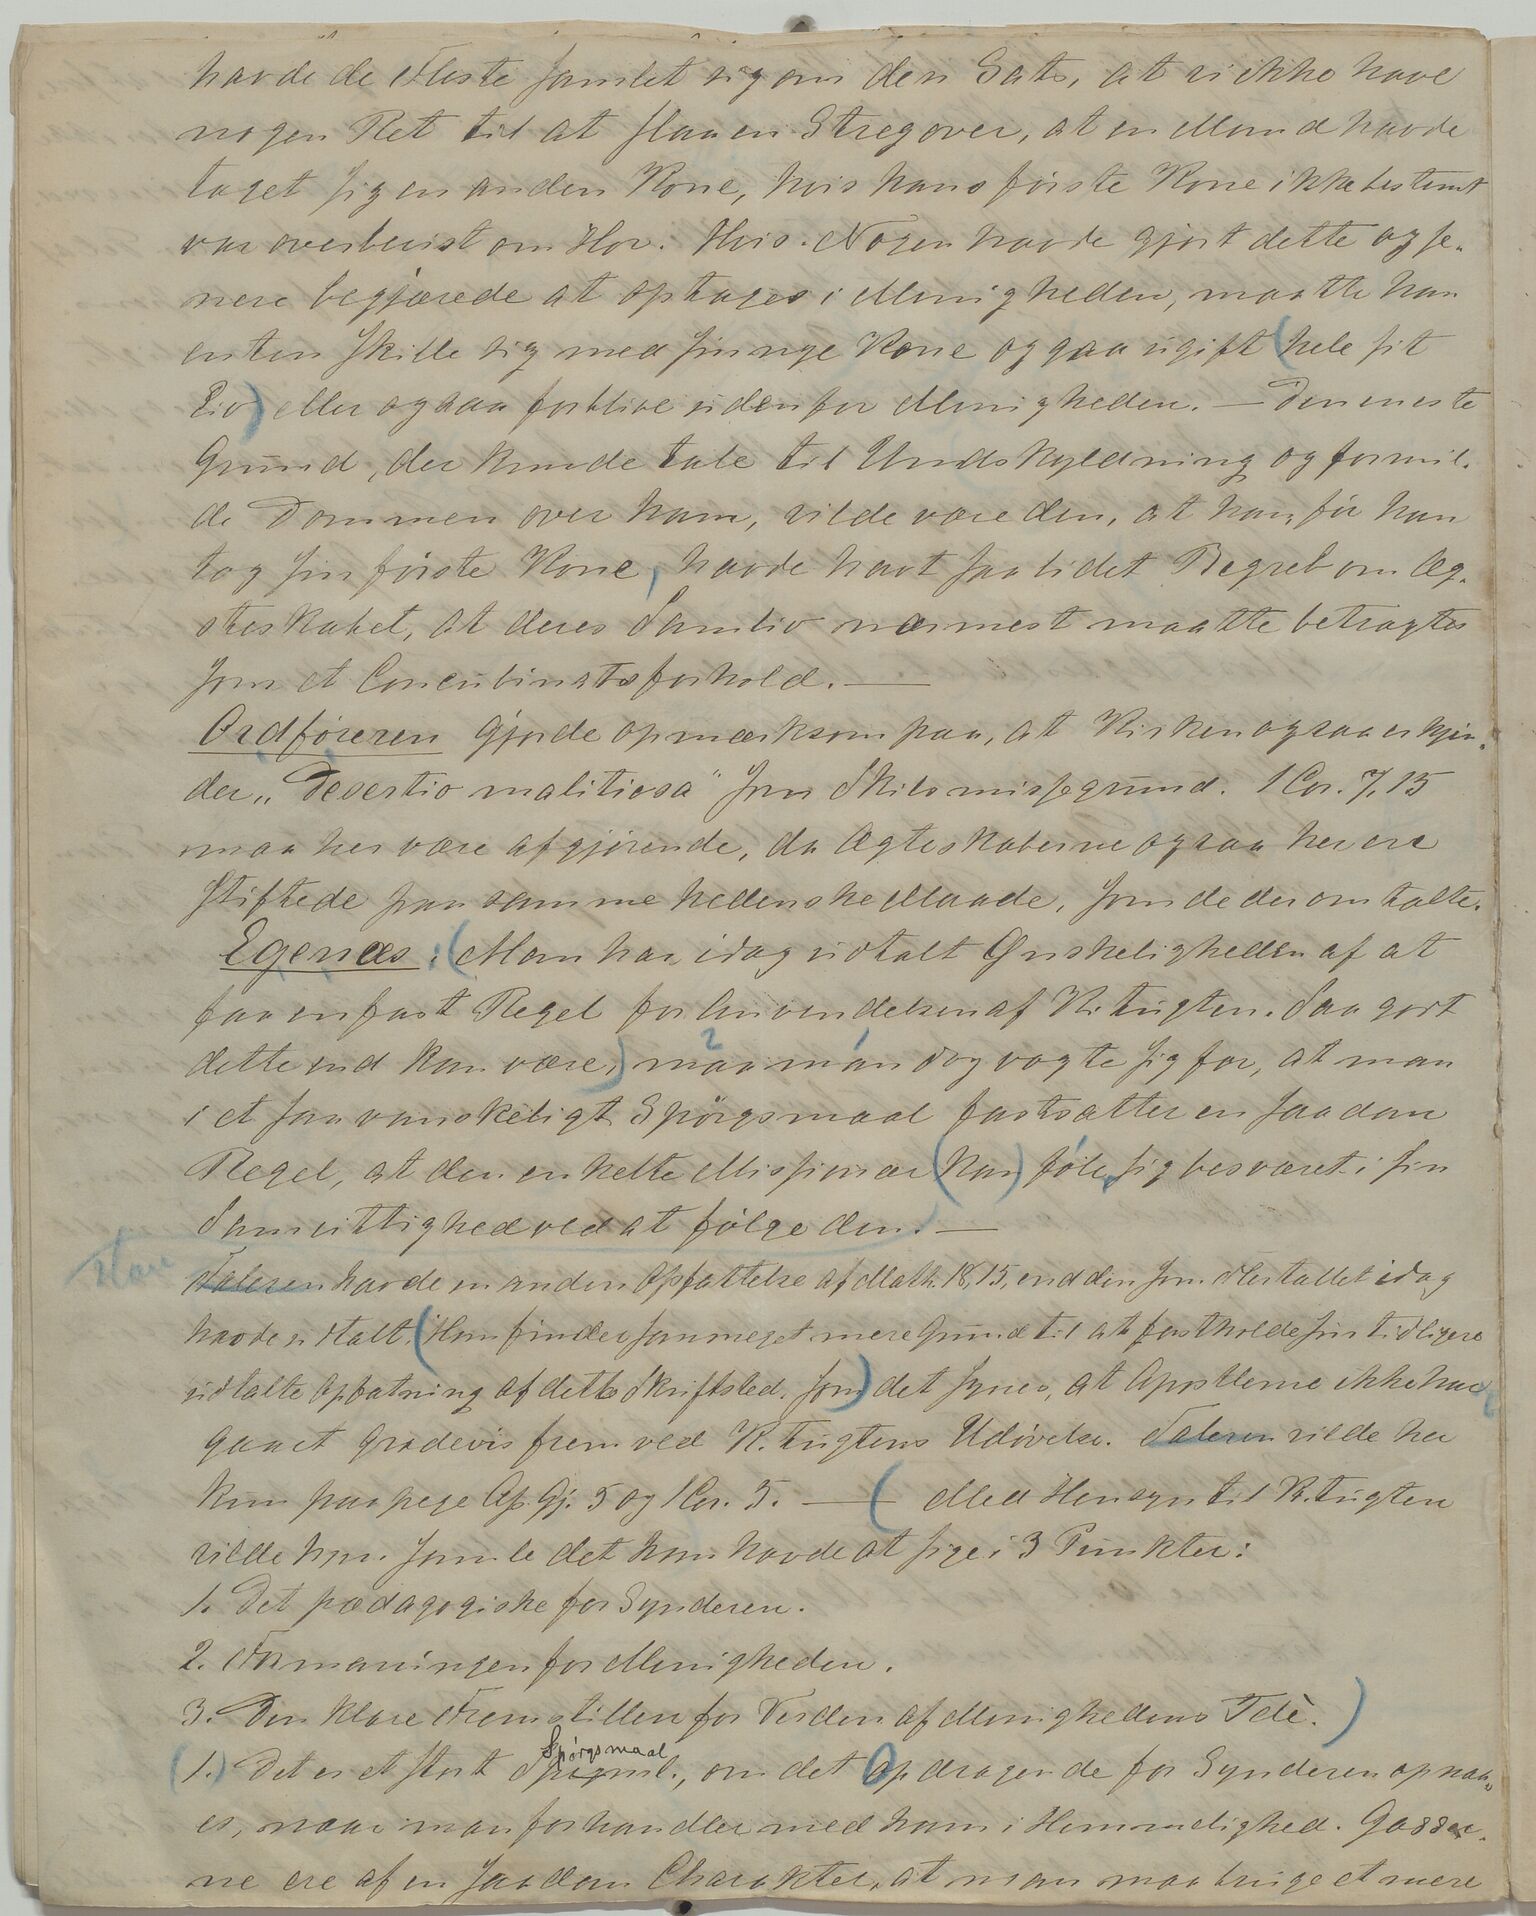 havde de Fleste samlet sig om den Sats, at vi ikke have
nogen Ret til at slaa en Streg over, at en Mand havde
taget sig en anden Kone, hvis hans første Kone ikke bestemt
var overbevist om Hor. Hvis Nogen havde gjort dette og se-
nere begjærede at optages i Menigheden, maatte han
enten skille sig med sin nye Kone og gaa ugift (hele sit
Liv) eller ogsaa forblive udenfor Menigheden. — Den eneste
Grund, der kunde tale til Undskyldning og formil-
de Dommen over ham, vilde være den, at han, før han
tog sin første Kone, havde havt saa lidet Begreb om Æg-
teskabet, at deres Samliv nærmest maatte betragtes
som et Concubinatsforhold. —
Ordføreren gjorde opmærksom paa, at Kirken ogsaa erkjen-
der „Desertio malitiosa" som Skilsmissegrund. 1 Cor. 7,15
maa her være afgjørende, da Ægteskaberne ogsaa her ere
stiftede paa samme hedenske Maade, som de der omtalte.
Egenæs: (Man har idag udtalt Ønskeligheden af at
faa en fast Regel for Anvendelsen af K. tugten. Saa godt
dette end kan være,) maa man dog vogte sig for, at man
i et saa vanskeligt Spørgsmaal fastsætter en saadan
Regel, at den enkelte Missionær (kan) føle sig besværet i sin
Samvittighed ved at følge den. —
Taleren havde en anden Opfattelse af Math. 18,15, end den som Flertallet idag
havde udtalt. (Han finder saa meget mere Grund til at fastholde sin tidligere
udtalte Opfatning af dette Skriftsted, som) det synes, at Apostlerne ikke har
gaaet gradevis frem ved K. tugtens Udøvelse. Taleren vilde her
kun paapege Ap. Gj. 5 og 1 Cor. 5. — (Med Hensyn til K. tugten
vilde han samle det han havde at sige i 3 Punkter:
1. Det pædagogiske for Synderen.
2. Formaningen for Menigheden.
3. Den klare Fremstillen for Verden af Menighedens Idè.)
(1.) Det er et stort Spørgsmaal, om det Opdragende for Synderen opnaa-
es, naar man forhandler med ham i Hemmelighed. Gasser-
ne ere af en saadan Charakter, at man maa bruge et mere